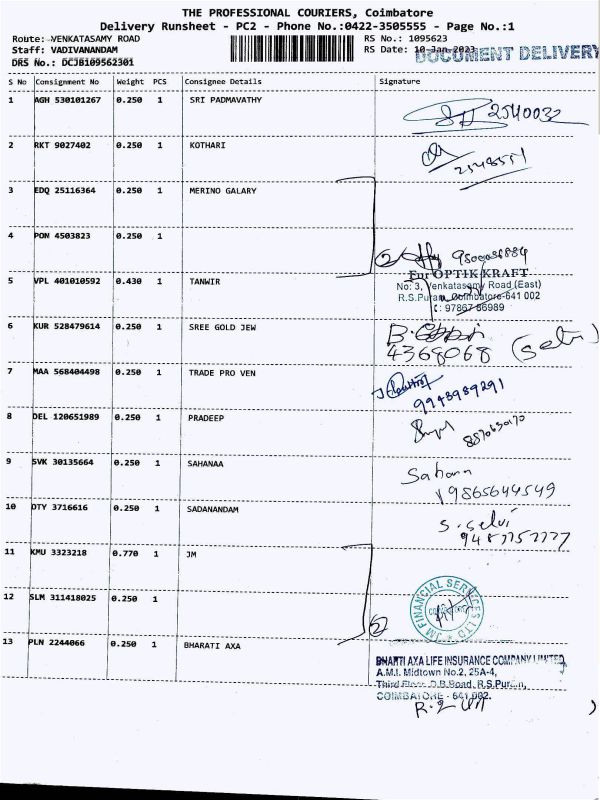 THE PROFESSIONAL COURIERS, Coimbatore
Delivery Runsheet - PC2 - Phone No.:0422-3505555 - Page No.:1
Route: VENKATASAMY ROAD
RS No.: 1095623
Staff: VADIVANANDAM
RS Date: 10-Jan-2023
DOCUMENT DELIVERY
DRS No.: DCJB109562301
S No Consignment No Weight PCS Consignee Details Signature
1 AGH 530101267 0.250 1 SRI PADMAVATHY 2540032
2 RKT 9027402 0.250 1 KOTHARI 2548551
3 EDQ 25116364 0.250 1 MERINO GALARY
4 PON 4503823 0.250 1
2
For OPTIK KRAFT
5 VPL 401010592 0.430 1 TANWIR No: 3, Venkatasamy Road (East)
R.S.Puram, Coimbatore-641 002
: 97867 86989
6 KUR 528479614 0.250 1 SREE GOLD JEW
4368068
7 MAA 568404498 0.250 1 TRADE PRO VEN
9948989291
8 DEL 120651989 0.250 1 PRADEEP
9 SVK 30135664 0.250 1 SAHANAA Sahana
9865644549
10 DTY 3716616 0.250 1 SADANANDAM S. Selvi
11 KMU 3323218 0.770 1 JM
12 SLM 311418025 0.250 1
JM FINANCIAL SERVICES LTD
2
13 PLN 2244066 0.250 1 BHARATI AXA
BHARTI AXA LIFE INSURANCE COMPANY LIMITED
A.M.I. Midtown No.2, 25A-4,
Third Floor, D.B.Road, R.S.Puram,
COIMBATORE - 641 002.